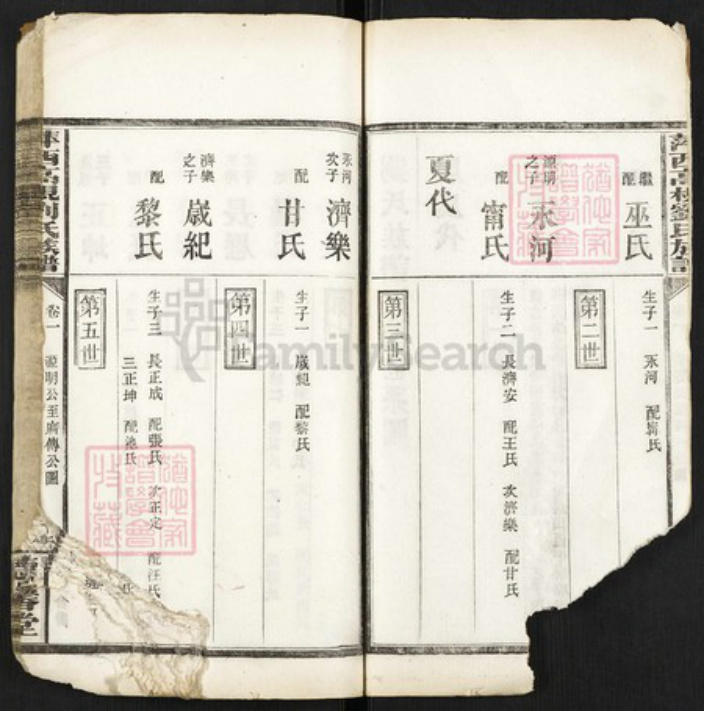 繼配 巫氏
生子一 永河 配甯氏
第二世
源明之子 永河
配 甯氏
生子二 長濟安 配王氏 次濟樂 配甘氏
第三世
夏代
永河次子 濟樂
配 甘氏
生子一 歲紀 配黎氏
第四世
濟樂之子 歲紀
配 黎氏
生子三 長正成 配張氏 次正定 配汪氏
三正坤 配
第五世
卷一 源明公至廣傳公圖
FamilySearch